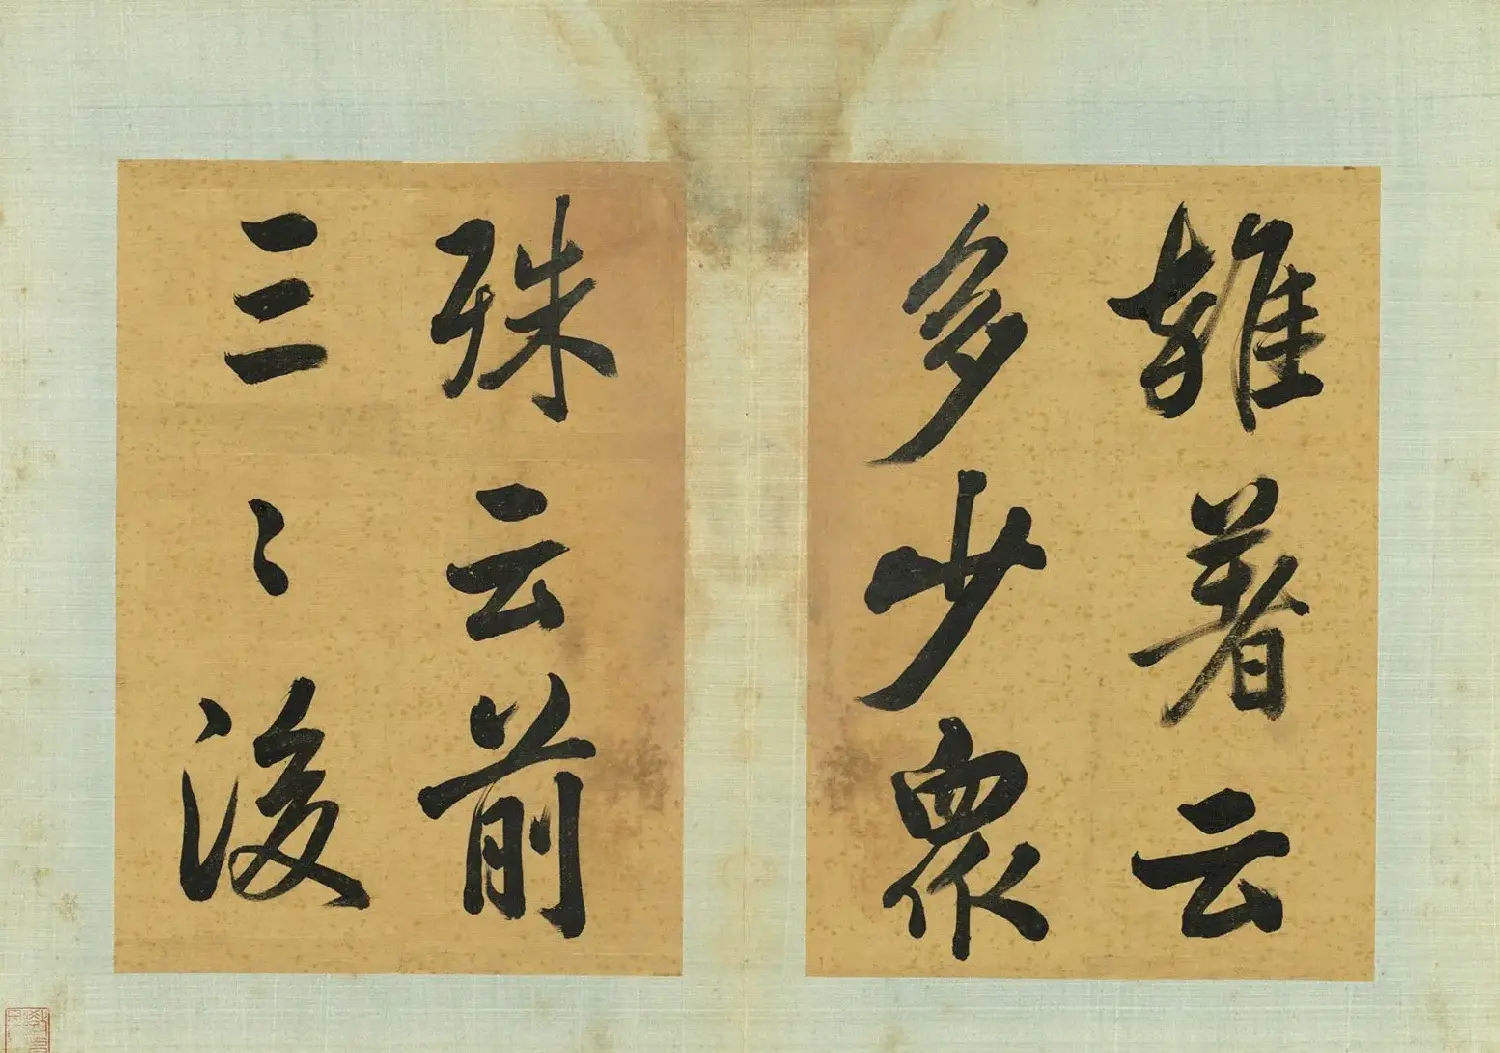 雜著云
多少眾
殊云前
三〻後